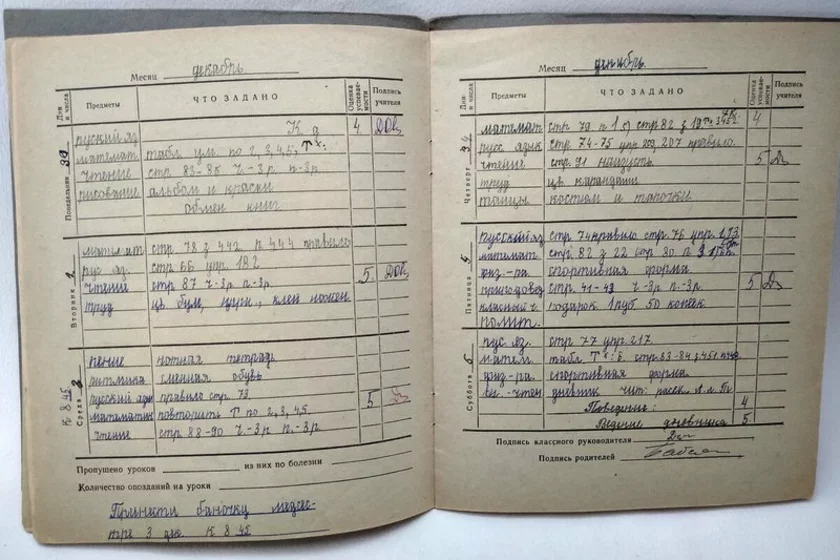 Месяц декабрь
Дни и числа Предметы ЧТО ЗАДАНО Оценка успеваемости Подпись учителя
Понедельник
русский яз. К д 4
математ табл ум. по 2, 3, 4, 5,
чтение стр 83-86 ч-3р п-3р
рисование альбом и краски
обмен книг
Вторник
математ стр 78 з 442 п 444 правило
рус яз. стр 66 упр 182
чтение стр 87 ч-3р п-3р 5
труд цв бум, клей ножни
К 8 45
Среда 3
пение нотная тетрадь
ритмика сменная обувь
русский язы правило стр 73
математик повторить Т по 2, 3, 4, 5. 5
чтение стр 88-90 ч-3р п-3р
Пропущено уроков из них по болезни
Количество опозданий на уроки
Принести баночку медсес-
тре 3 дек. К 8 45
Месяц декабрь
Дни и числа Предметы ЧТО ЗАДАНО Оценка успеваемости Подпись учителя
Четверг
математ стр 79 п 1 стр 82 4
русс язык стр 74-75 упр 207 правило.
чтение стр 91 наизусть 5
труд цв карандаши
танцы костюм и тапочки
Пятница 5
русский яз стр 74 правило стр 76 упр 213
математ стр 82 з 22 стр 80
физ-ра спортивная форма
природовед стр 41-43 ч-3р п-3р. 5
классный ч подарок 1 руб 50 копеек
полит.
Суббота
рус яз. стр 77 упр 217
матем табл стр 83-84
физ-ра спортивная форма
вн. чтен дневник чит:
Поведение: 4
Ведение дневника 5.
Подпись классного руководителя
Подпись родителей